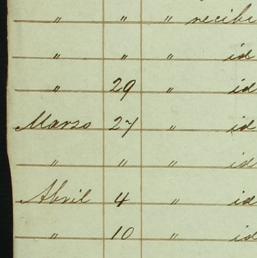 " " " recibi
" " " id
" 29 " id
Marzo 27 " id
" " " id
Abril 4 " id
" 10 " id